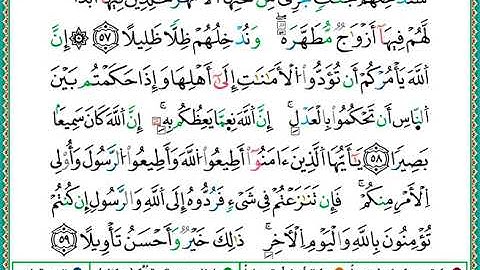 لَّهُمْ فِيهَآ أَزْوَاجٌ مُّطَهَّرَةٌ ۖ وَنُدْخِلُهُمْ ظِلًّا ظَلِيلًا ﴿٥٧﴾ إِنَّ
اللَّهَ يَأْمُرُكُمْ أَن تُؤَدُّوا الْأَمَانَاتِ إِلَىٰٓ أَهْلِهَا وَإِذَا حَكَمْتُم بَيْنَ
النَّاسِ أَن تَحْكُمُوا بِالْعَدْلِ ۚ إِنَّ اللَّهَ نِعِمَّا يَعِظُكُم بِهِۦٓ ۗ إِنَّ اللَّهَ كَانَ سَمِيعًا
بَصِيرًا ﴿٥٨﴾ يَآأَيُّهَا الَّذِينَ ءَامَنُوٓا أَطِيعُوا اللَّهَ وَأَطِيعُوا الرَّسُولَ وَأُولِى
الْأَمْرِ مِنكُمْ ۖ فَإِن تَنَازَعْتُمْ فِى شَىْءٍ فَرُدُّوهُ إِلَى اللَّهِ وَالرَّسُولِ إِن كُنتُمْ
تُؤْمِنُونَ بِاللَّهِ وَالْيَوْمِ الْآخِرِ ۚ ذَٰلِكَ خَيْرٌ وَأَحْسَنُ تَأْوِيلًا ﴿٥٩﴾